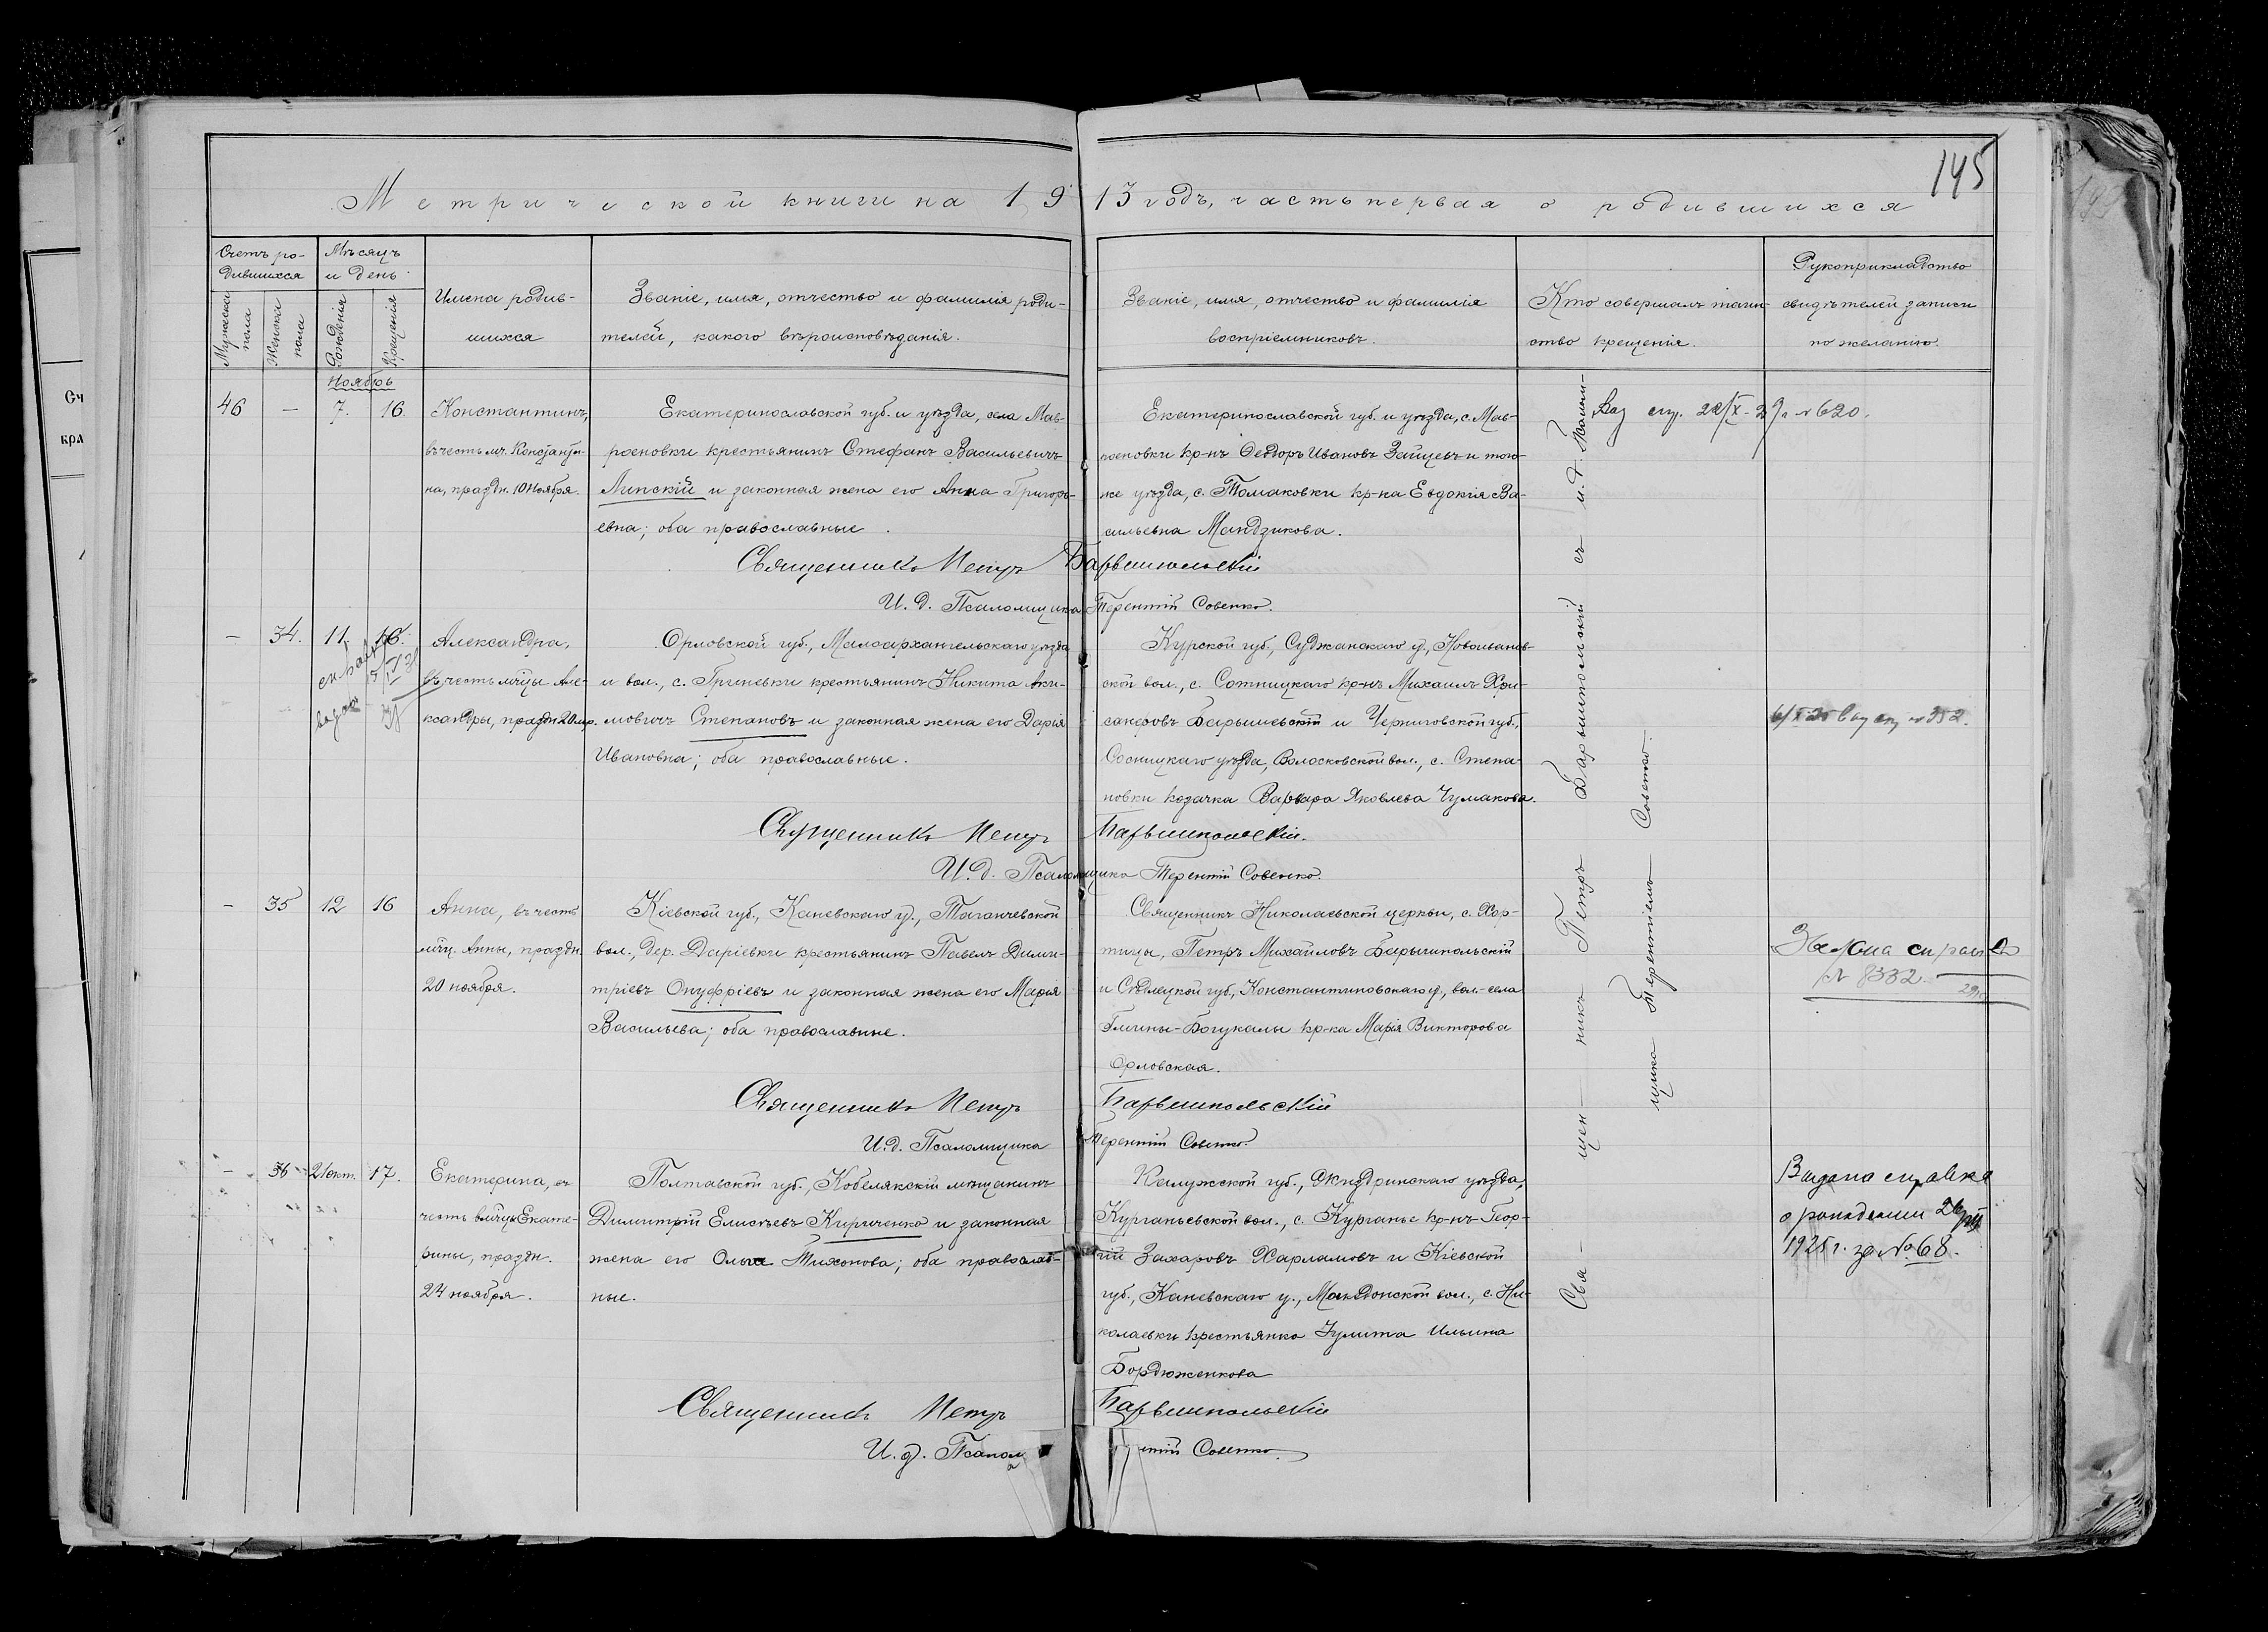 145
Метрической книги на 1913 годъ, часть первая о родившихся
Счетъ ро-
дившихся
Мужеска
пола
Женска
пола
Мѣсяцъ
и день
Рожденія
Крещенія
Имена родив-
шихся
Званіе, имя, отчество и фамилія роди-
телей, какого вѣроисповѣданія.
Званіе, имя, отчество и фамилія
воспріемниковъ.
Кто совершалъ таин-
ство крещенія.
Рукоприкладство
свидѣтелей записи
по желанію.
Ноябрь
46 — 7. 16.
Константинъ,
въ честь мч. Константи-
на, праздн. 10 ноября.
Екатеринославской губ. и уѣзда, села Мав-
роеновки крестьянинъ Стефанъ Васильевичъ
Липскій и законная жена его Анна Григорь-
евна; оба православные.
Екатеринославской губ. и уѣзда, с. Мав-
роеновки кр-нъ Ѳеодоръ Ивановъ Зайцевъ и того-
же уѣзда, с. Томаковки кр-ка Евдокія Ва-
сильевна Мандзикова.
№ 620.
Священникъ Петръ Барышпольскій
И. д. Псаломщика Терентій Совенко.
— 34. 11. 16.
Александра,
въ честь мч̃цы Але-
ксандры, праздн 20 мр.
Орловской губ., Малоархангельскаго уѣзда
и вол., с. Гриневки крестьянинъ Никита Аки-
мовичъ Степановъ и законная жена его Дарія
Ивановна; оба православные.
Курской губ., Суджанскаго у., Новоивановской
ской вол., с. Сотницкаго кр-нъ Михаилъ Хри-
санфовъ Барышевскій и Черниговской губ.,
Сосницкаго уѣзда, Волосковской вол., с. Степа-
новки козачка Варвара Яковлева Чумакова.
№ 352.
Священникъ Петръ Барышпольскій.
И. д. Псаломщика Терентій Совенко.
— 35 12 16
Анна, въ честь
мч̃ц. Анны, праздн.
20 ноября.
Кіевской губ., Каневскаго у., Таганчевской
вол., дер. Даріевки крестьянинъ Павелъ Дими-
тріевъ Онуфріевъ и законная жена его Марія
Васильева; оба православные.
Священникъ Николаевской церкви, с. Хор-
тицы, Петръ Михайловъ Барышпольскій
и Сѣдлецкой губ., Константиновскаго у., вол.-села
Глины-Богукалы кр-ка Марія Викторова
Орловская.
№ 8332
Священникъ Петръ Барышпольскій
И. д. Псаломщика Терентій Совенко.
— 36 21 окт. 17.
Екатерина, въ
честь влмч̃цы Екате-
рины, праздн.
24 ноября.
Полтавской губ., Кобелякскій мѣщанинъ
Димитрій Елисѣевъ Кириченко и законная
жена его Ольга Тихонова; оба православ-
ные.
Калужской губ., Жиздринскаго уѣзда,
Курганьевской вол., с. Курганье кр-нъ Геор-
гій Захаровъ Харламовъ и Кіевской
губ., Каневскаго у., Македонской вол., с. Ни-
колаевки крестьянка Іулита Ильина
Бордюженкова
Выдана справка
о рождении
1925 г. за № 68.
Священникъ Петръ Барышпольскій
И. д. Псалом
Совенко.
Священникъ Петръ Барышпольскій съ и. д. Псалом-
щика Терентіемъ Совенко.